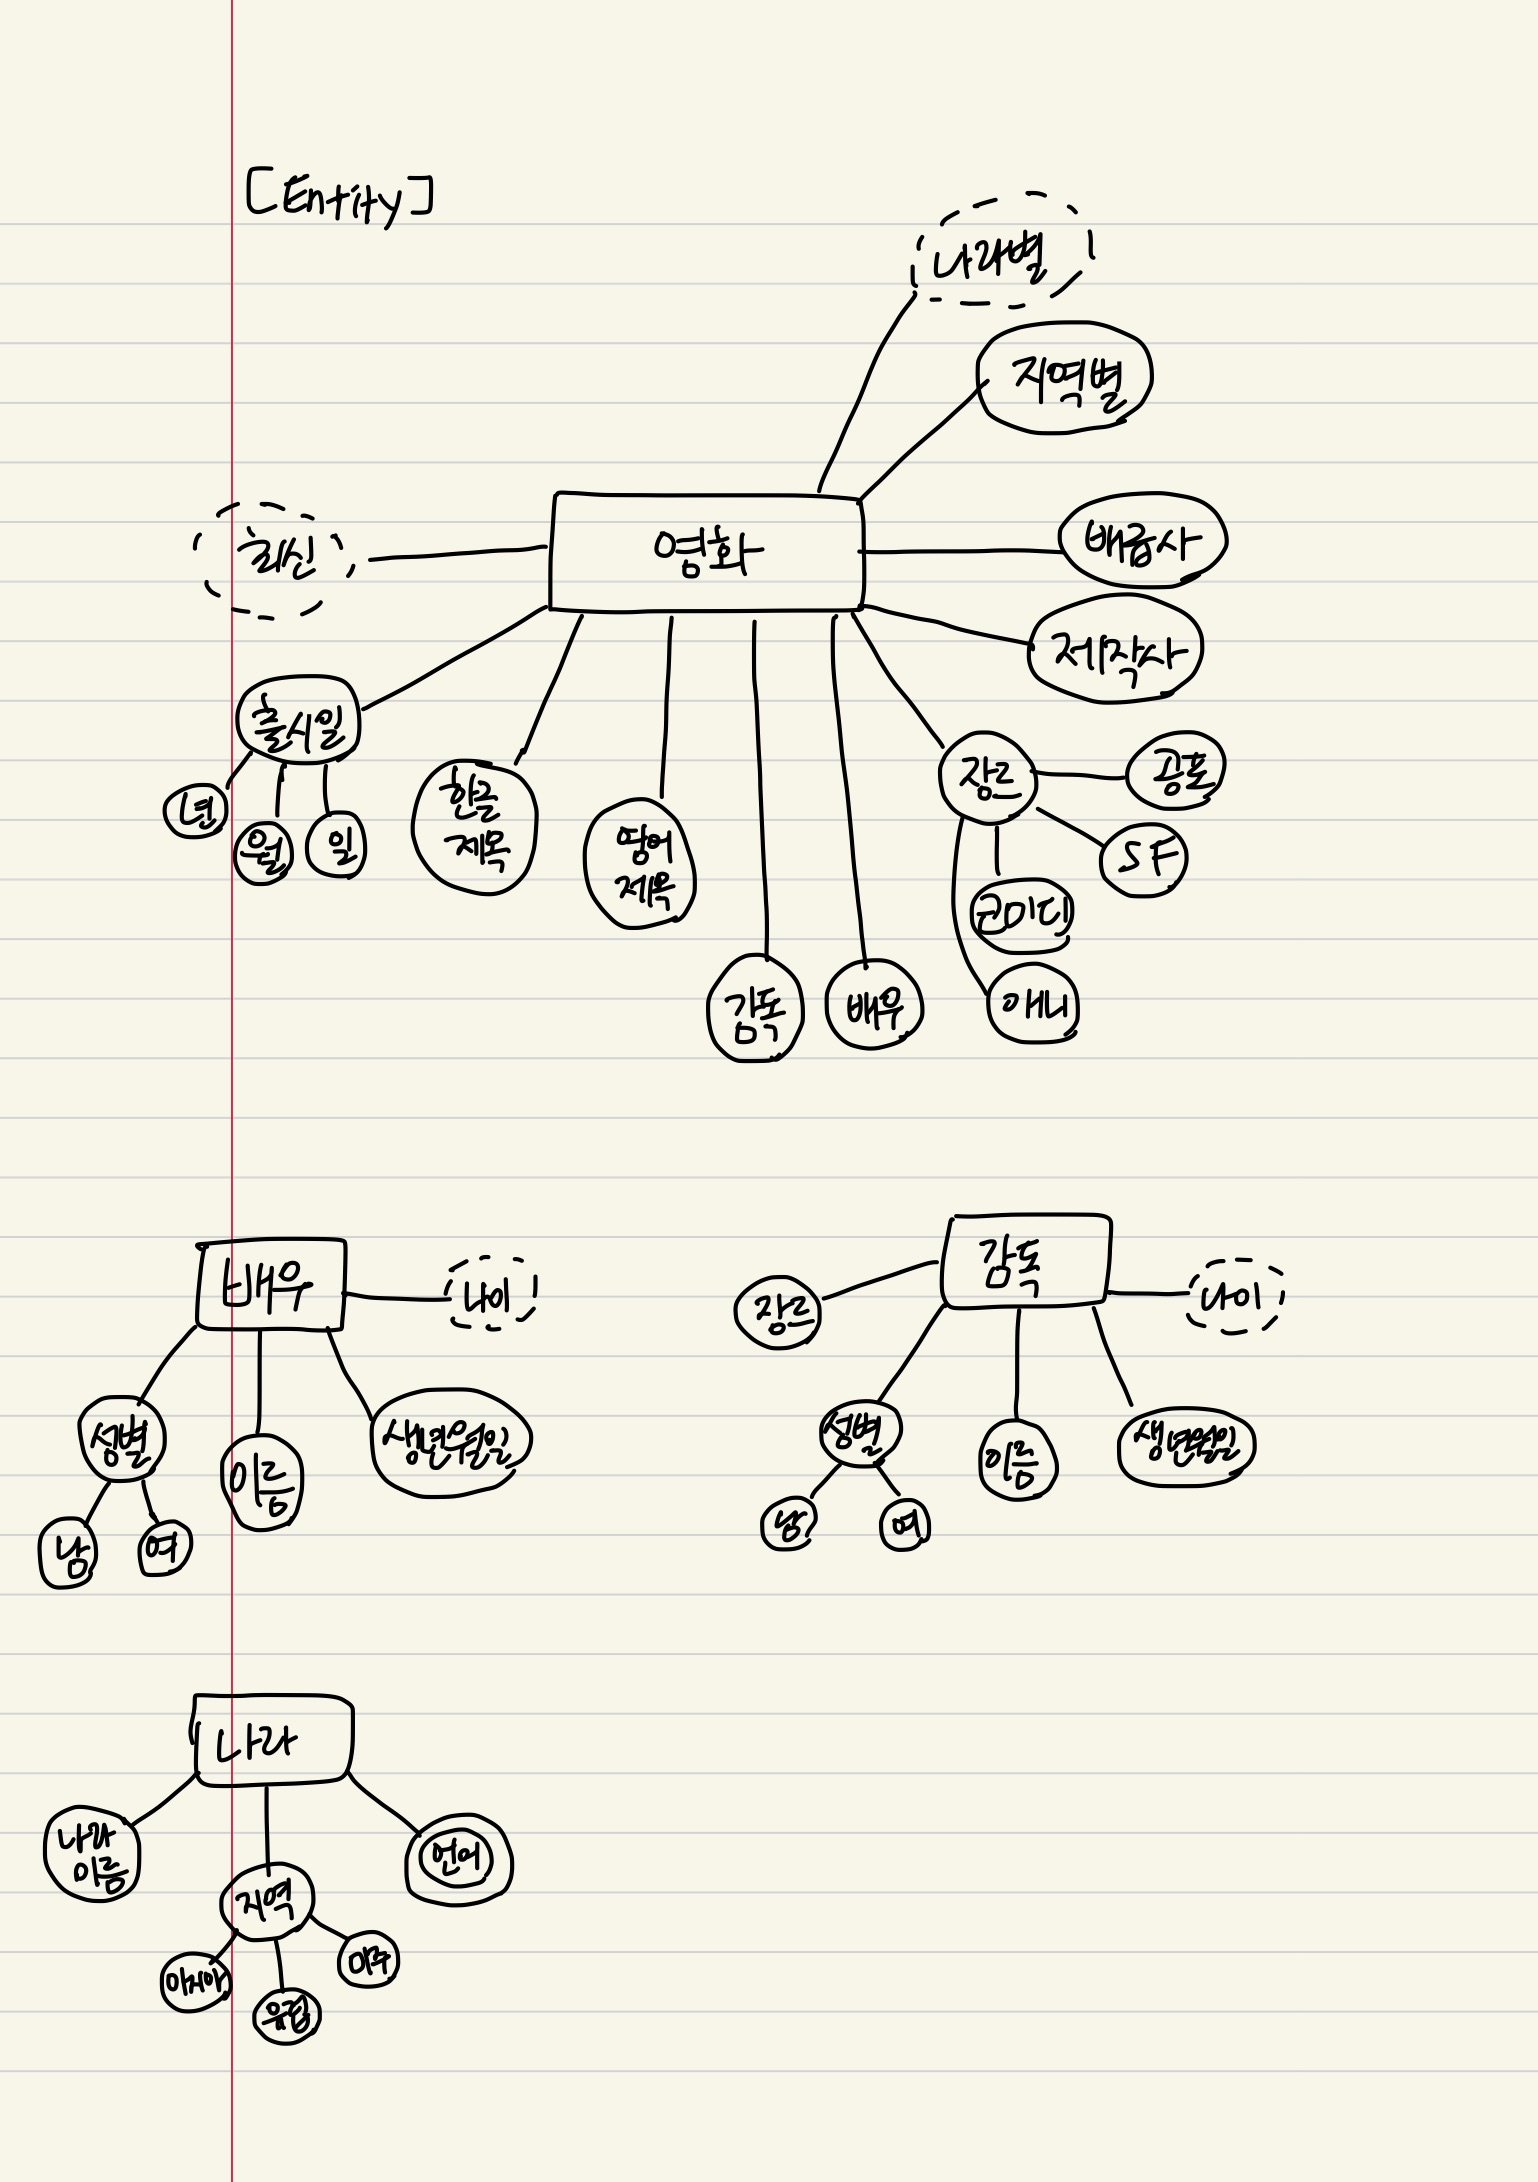 [Entity]
나라별
지역별
최신
영화
배급사
제작사
출시일
년
월
일
한글
제목
영어
제목
감독
배우
장르
공포
SF
코미디
애니
배우
나이
성별
남
여
이름
생년월일
감독
나이
장르
성별
남
여
이름
생년월일
나라
나라
이름
지역
아시아
유럽
미주
언어